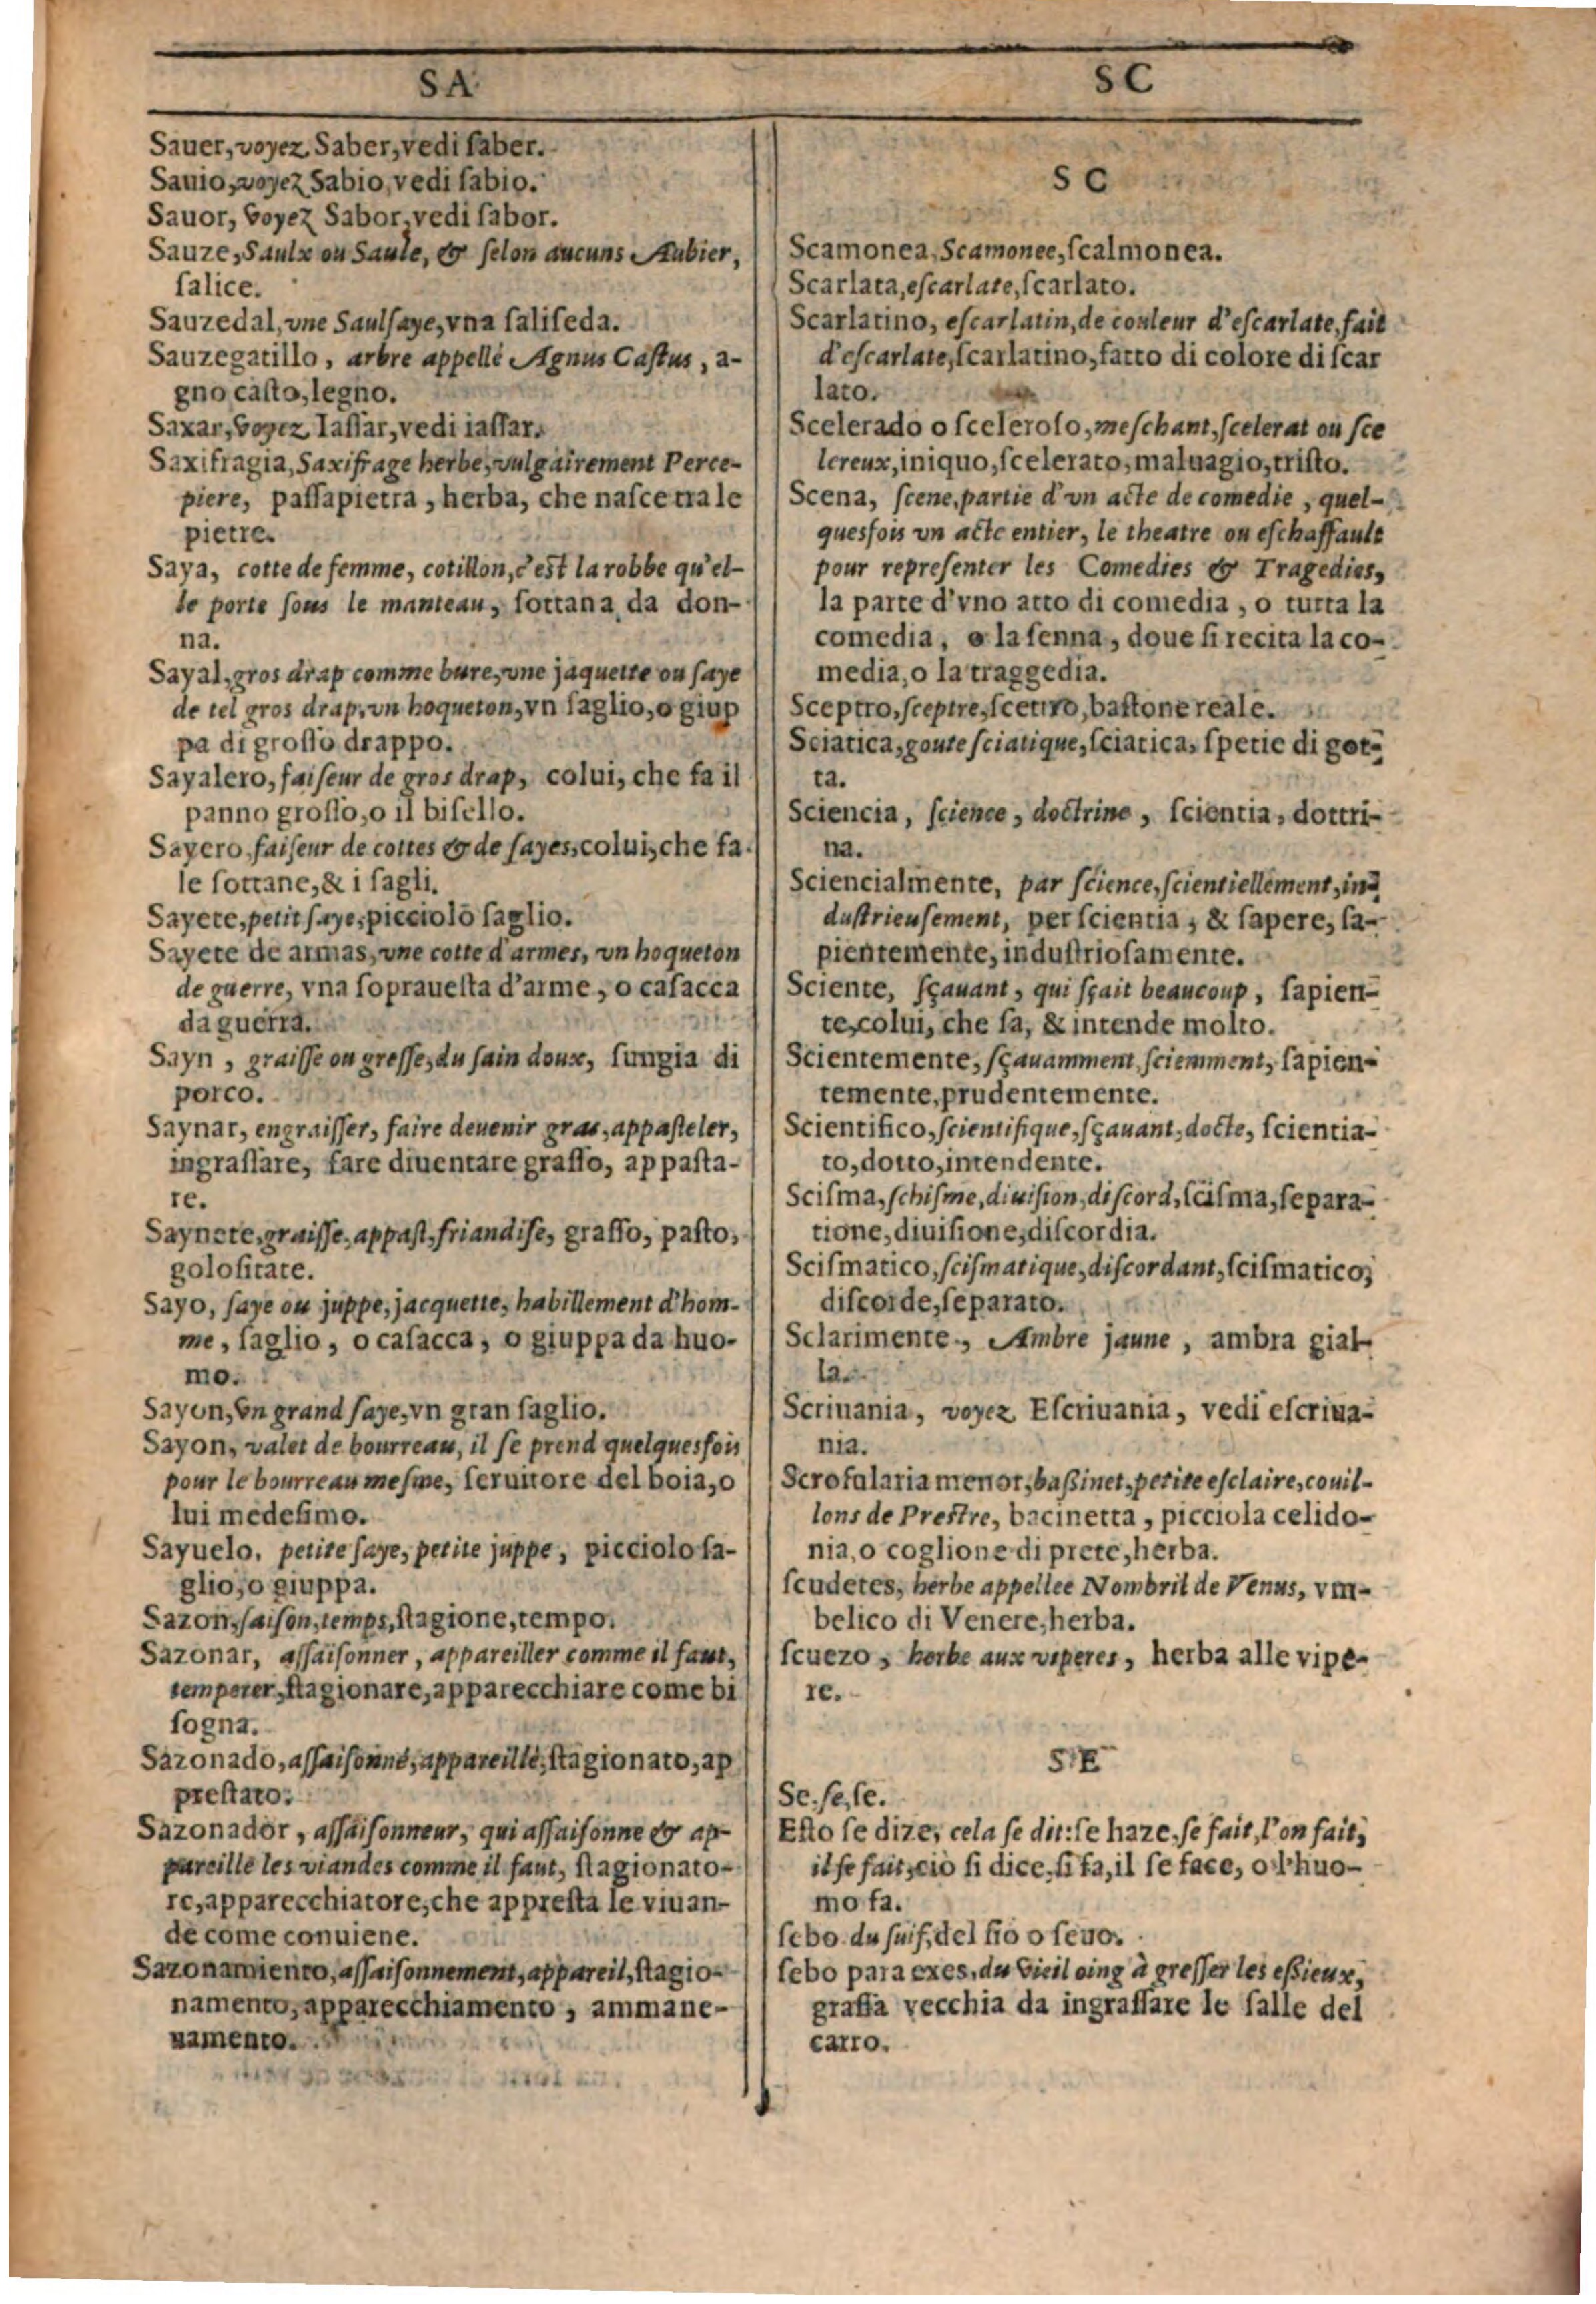 SA
SC
Sauer, voyez Saber, vedi ſaber.
Sauio, voyez Sabio, vedi ſabio.
Sauor, voyez Sabor, vedi ſabor.
Sauze, Saulx ou Saule, & ſelon aucuns Aubier,
ſalice.
Sauzedal, vne Saulſaye, vna ſaliſeda.
Sauzegatillo, arbre appellé Agnus Caſtus, a-
gno caſto, legno.
Saxar, voyez Iaſſar, vedi iaſſar.
Saxifragia, Saxifrage herbe, vulgairement Perce-
piere, paſſapietra, herba, che naſce tra le
pietre.
Saya, cotte de femme, cotillon, c'eſt la robbe qu'el-
le porte ſous le manteau, ſottana da don-
na.
Sayal, gros drap comme bure, vne jaquette ou ſaye
de tel gros drap, vn hoqueton, vn ſaglio, o giup
pa di groſſo drappo.
Sayalero, faiſeur de gros drap, colui, che fa il
panno groſſo, o il biſello.
Sayero, faiſeur de cottes & de ſayes, colui, che fa
le ſottane, & i ſagli.
Sayete, petit ſaye, picciolo ſaglio.
Sayete de armas, vne cotte d'armes, vn hoqueton
de guerre, vna ſopraueſta d'arme, o caſacca
da guerra.
Sayn, graiſſe ou greſſe, du ſain doux, ſungia di
porco.
Saynar, engraiſſer, faire deuenir gras, appaſteler,
ingraſſare, fare diuentare graſſo, appaſta-
re.
Saynete, graiſſe, appaſt, friandiſe, graſſo, paſto,
goloſitate.
Sayo, ſaye ou juppe, jacquette, habillement d'hom-
me, ſaglio, o caſacca, o giuppa da huo-
mo.
Sayon, vn grand ſaye, vn gran ſaglio.
Sayon, valet de bourreau, il ſe prend quelquesfois
pour le bourreau meſme, ſeruitore del boia, o
lui medeſimo.
Sayuelo, petite ſaye, petite juppe, picciolo ſa-
glio, o giuppa.
Sazon, ſaiſon, temps, ſtagione, tempo.
Sazonar, aſſaiſonner, appareiller comme il faut,
temperer, ſtagionare, apparecchiare come bi
ſogna.
Sazonado, aſſaiſonné, appareillé, ſtagionato, ap
preſtato.
Sazonador, aſſaiſonneur, qui aſſaiſonne & ap-
pareille les viandes comme il faut, ſtagionato-
re, apparecchiatore, che appreſta le viuan-
de come conuiene.
Sazonamiento, aſſaiſonnement, appareil, ſtagio-
namento, apparecchiamento, ammane-
uamento.
SC
Scamonea, Scamonee, ſcalmonea.
Scarlata, eſcarlate, ſcarlato.
Scarlatino, eſcarlatin, de couleur d'eſcarlate, fait
d'eſcarlate, ſcarlatino, fatto di colore di ſcar
lato.
Scelerado o ſceleroſo, meſchant, ſcelerat ou ſce
lereux, iniquo, ſcelerato, maluagio, triſto.
Scena, ſcene, partie d'vn acte de comedie, quel-
quesfois vn acte entier, le theatre ou eſchaffault
pour repreſenter les Comedies & Tragedies,
la parte d'vno atto di comedia, o tutta la
comedia, o la ſenna, doue ſi recita la co-
media, o la traggedia.
Sceptro, ſceptre, ſcettro, baſtone reale.
Sciatica, goute ſciatique, ſciatica, ſpetie di got-
ta.
Sciencia, ſcience, doctrine, ſcientia, dottri-
na.
Sciencialmente, par ſcience, ſcientiellement, in-
duſtrieuſement, per ſcientia, & ſapere, ſa-
pientemente, induſtrioſamente.
Sciente, ſçauant, qui ſçait beaucoup, ſapien-
te, colui, che ſa, & intende molto.
Scientemente, ſçauamment, ſciemment, ſapien-
temente, prudentemente.
Scientifico, ſcientifique, ſçauant, docte, ſcientia-
to, dotto, intendente.
Sciſma, ſchiſme, diuiſion, diſcord, ſciſma, ſepara-
tione, diuiſione, diſcordia.
Sciſmatico, ſciſmatique, diſcordant, ſciſmatico,
diſcorde, ſeparato.
Sclarimente, Ambre jaune, ambra gial-
la.
Scriuania, voyez Eſcriuania, vedi eſcriua-
nia.
Scrofularia menor, baßinet, petite eſclaire, couil-
lons de Preſtre, bacinetta, picciola celido-
nia, o coglione di prete, herba.
ſcudetes, herbe appellee Nombril de Venus, vm-
belico di Venere, herba.
ſcuezo, herbe aux viperes, herba alle vipe-
re.
SE
Se, ſe, ſe.
Eſto ſe dize, cela ſe dit: ſe haze, ſe fait, l'on fait,
il ſe fait, ciò ſi dice, ſi fa, il ſe face, o l'huo-
mo fa.
ſebo du ſuif, del ſio o ſeuo.
ſebo para exes, du vieil oing à greſſer les eßieux,
graſſa vecchia da ingraſſare le ſalle del
carro.